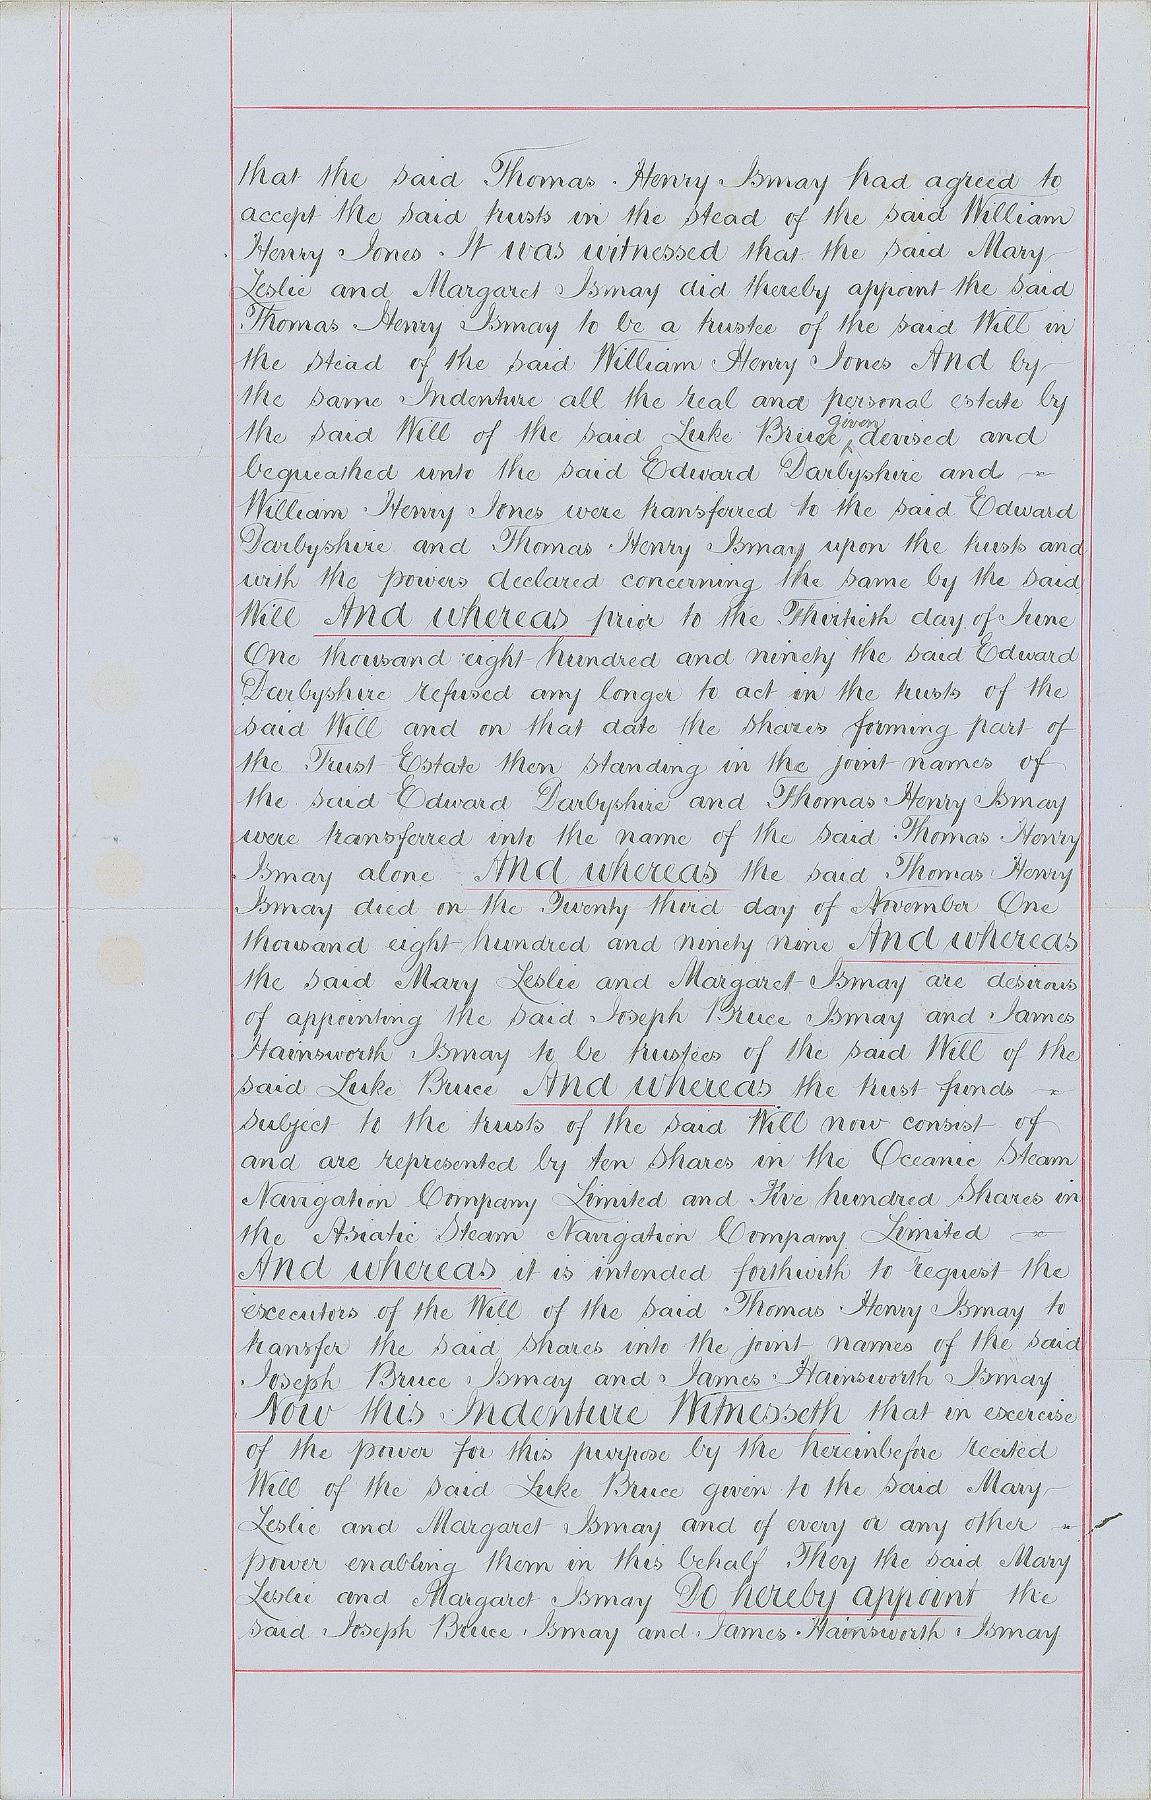 that the said Thomas Henry Ismay had agreed to
accept the said trusts in the stead of the said William
Henry Jones It was witnessed that the said Mary
Leslie and Margaret Ismay did thereby appoint the said
Thomas Henry Ismay to be a trustee of the said Will in
the stead of the said William Henry Jones And by
the same Indenture all the real and personal estate by
the said Will of the said Luke Bruce given devised and
bequeathed unto the said Edward Darbyshire and
William Henry Jones were transferred to the said Edward
Darbyshire and Thomas Henry Ismay upon the trusts and
with the powers declared concerning the same by the said
Will And whereas prior to the Thirtieth day of June
One thousand eight hundred and ninety the said Edward
Darbyshire refused any longer to act in the trusts of the
said Will and on that date the shares forming part of
the Trust Estate then standing in the joint names of
the said Edward Darbyshire and Thomas Henry Ismay
were transferred into the name of the said Thomas Henry
Ismay alone And whereas the said Thomas Henry
Ismay died on the Twenty third day of November One
thousand eight hundred and ninety nine And whereas
the said Mary Leslie and Margaret Ismay are desirous
of appointing the said Joseph Bruce Ismay and James
Hainsworth Ismay to be trustees of the said Will of the
said Luke Bruce And whereas the trust funds
subject to the trusts of the said Will now consist of
and are represented by ten shares in the Oceanic Steam
Navigation Company Limited and Five hundred shares in
the Asiatic Steam Navigation Company Limited
And whereas it is intended forthwith to request the
executors of the Will of the said Thomas Henry Ismay to
transfer the said shares into the joint names of the said
Joseph Bruce Ismay and James Hainsworth Ismay
Now this Indenture Witnesseth that in excercise
of the power for this purpose by the hereinbefore recited
Will of the said Luke Bruce given to the said Mary
Leslie and Margaret Ismay and of every or any other
power enabling them in this behalf They the said Mary
Leslie and Margaret Ismay Do hereby appoint the
said Joseph Bruce Ismay and James Hainsworth Ismay